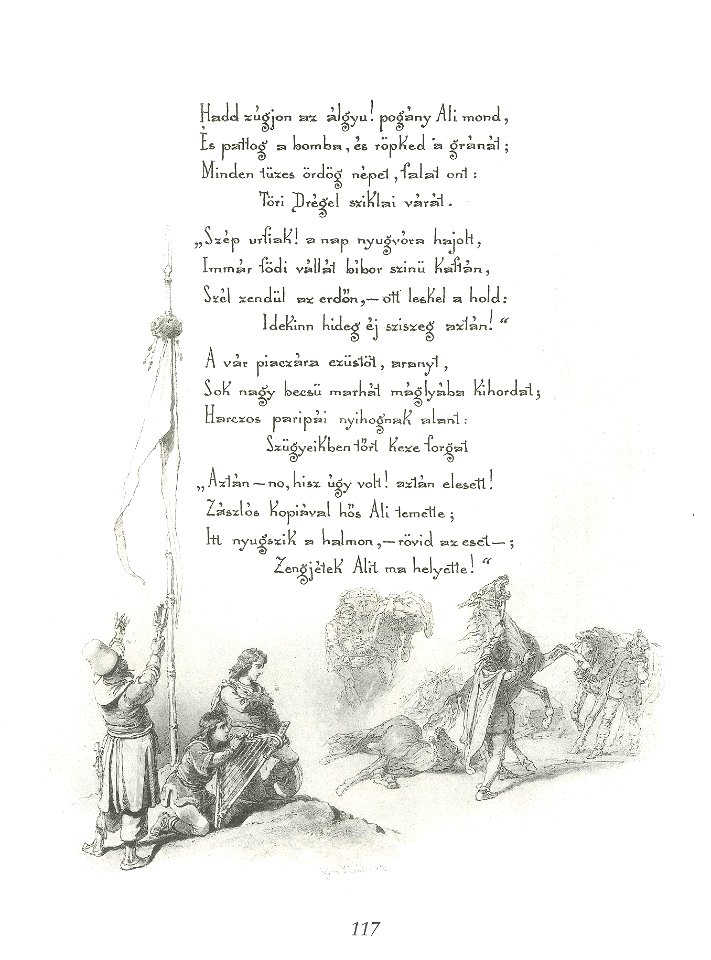 Hadd zúgjon az álgyu! pogány Ali mond,
És pattog a bomba, és röpked a gránát;
Minden tüzes ördög népet, falat ont:
Töri Drégel sziklai várát.
„Szép urfiak! a nap nyugvóra hajolt,
Immár födi vállát bíbor szinü kaftán,
Szél zendül az erdőn, – ott leskel a hold:
Idekinn hideg éj sziszeg aztán!“
A vár piaczára ezüstöt, aranyt,
Sok nagy becsü marhát máglyába kihordat;
Harczos paripái nyihognak alant:
Szügyeikben tört keze forgat
„Aztán – no, hisz úgy volt! aztán elesett!
Zászlós kopiával hős Ali temette;
Itt nyugszik a halmon, – rövid az eset –;
Zengjétek Alit ma helyette!“
117